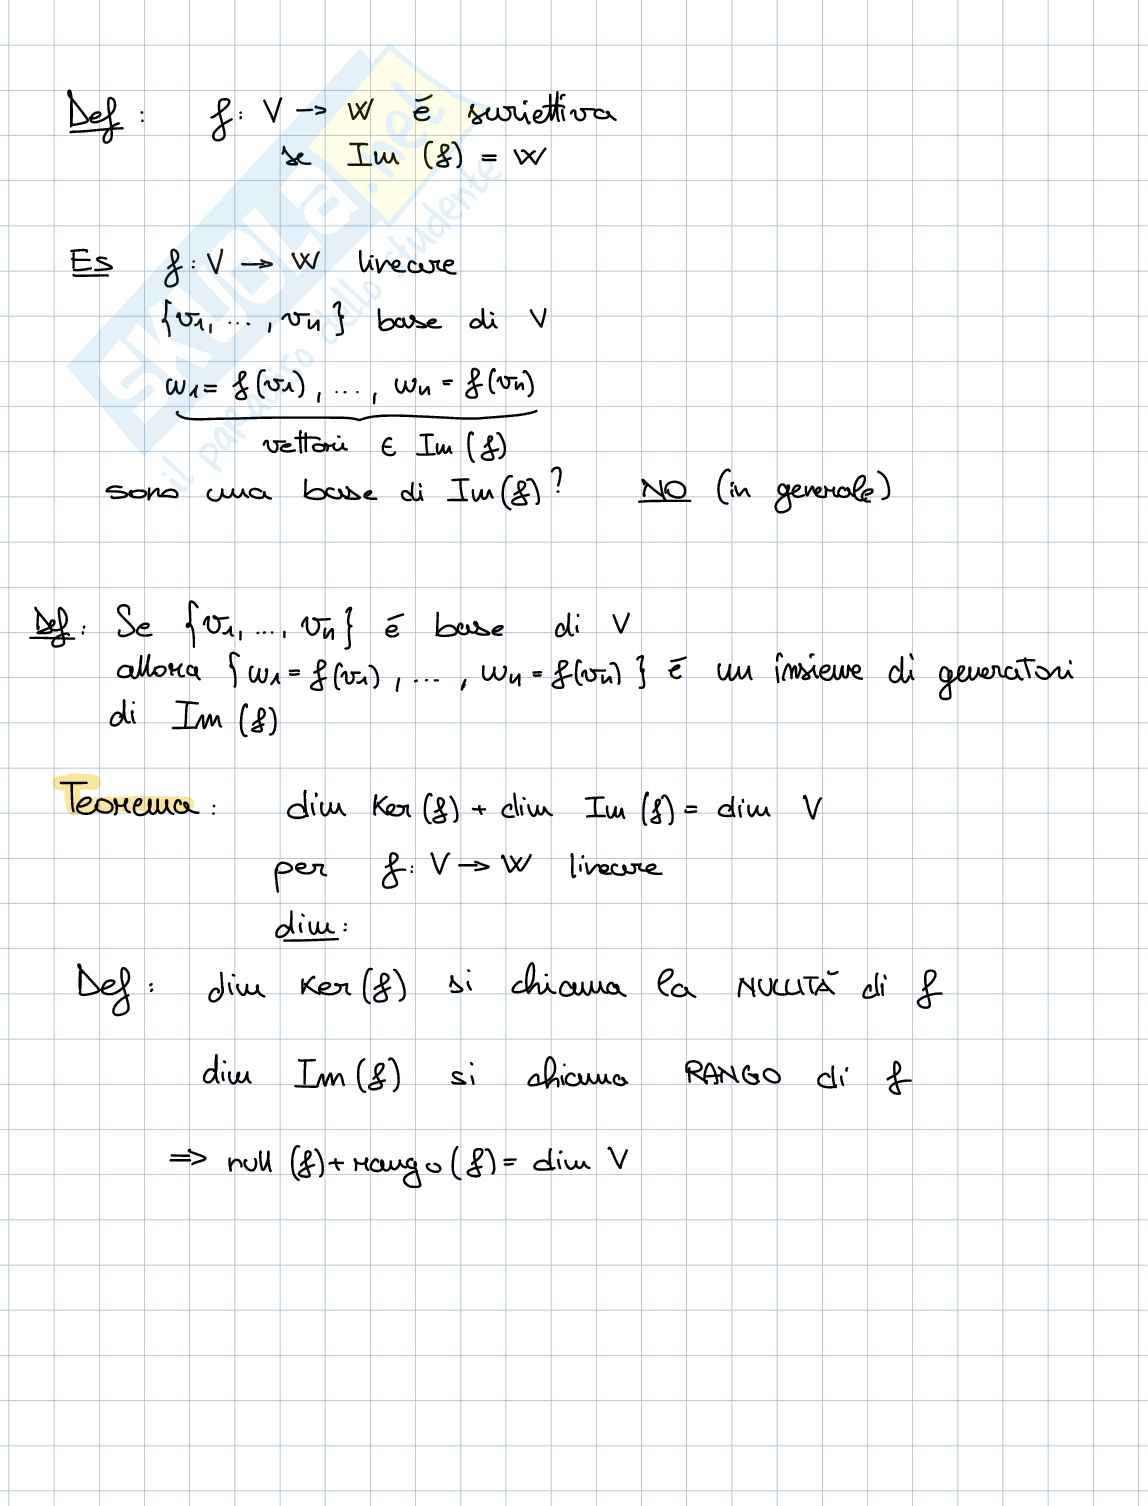 Def : f: V → W ē suriettiva
se Im (f) = W
Es f: V → W lineare
{v1, ..., vn} base di V
w1 = f(v1), ..., wn = f(vn)
vettori ∈ Im (f)
sono una base di Im(f)? NO (in generale)
Def: Se {v1, ..., vn} ē base di V
allora {w1 = f(v1), ..., wn = f(vn)} ē un insieme di generatori
di Im (f)
Teorema: dim Ker (f) + dim Im (f) = dim V
per f: V → W lineare
dim:
Def: dim Ker (f) si chiama la NULLITÀ di f
dim Im (f) si chiama RANGO di f
=> null (f) + rango (f) = dim V
SKUOLA.net
il paradiso dello studente